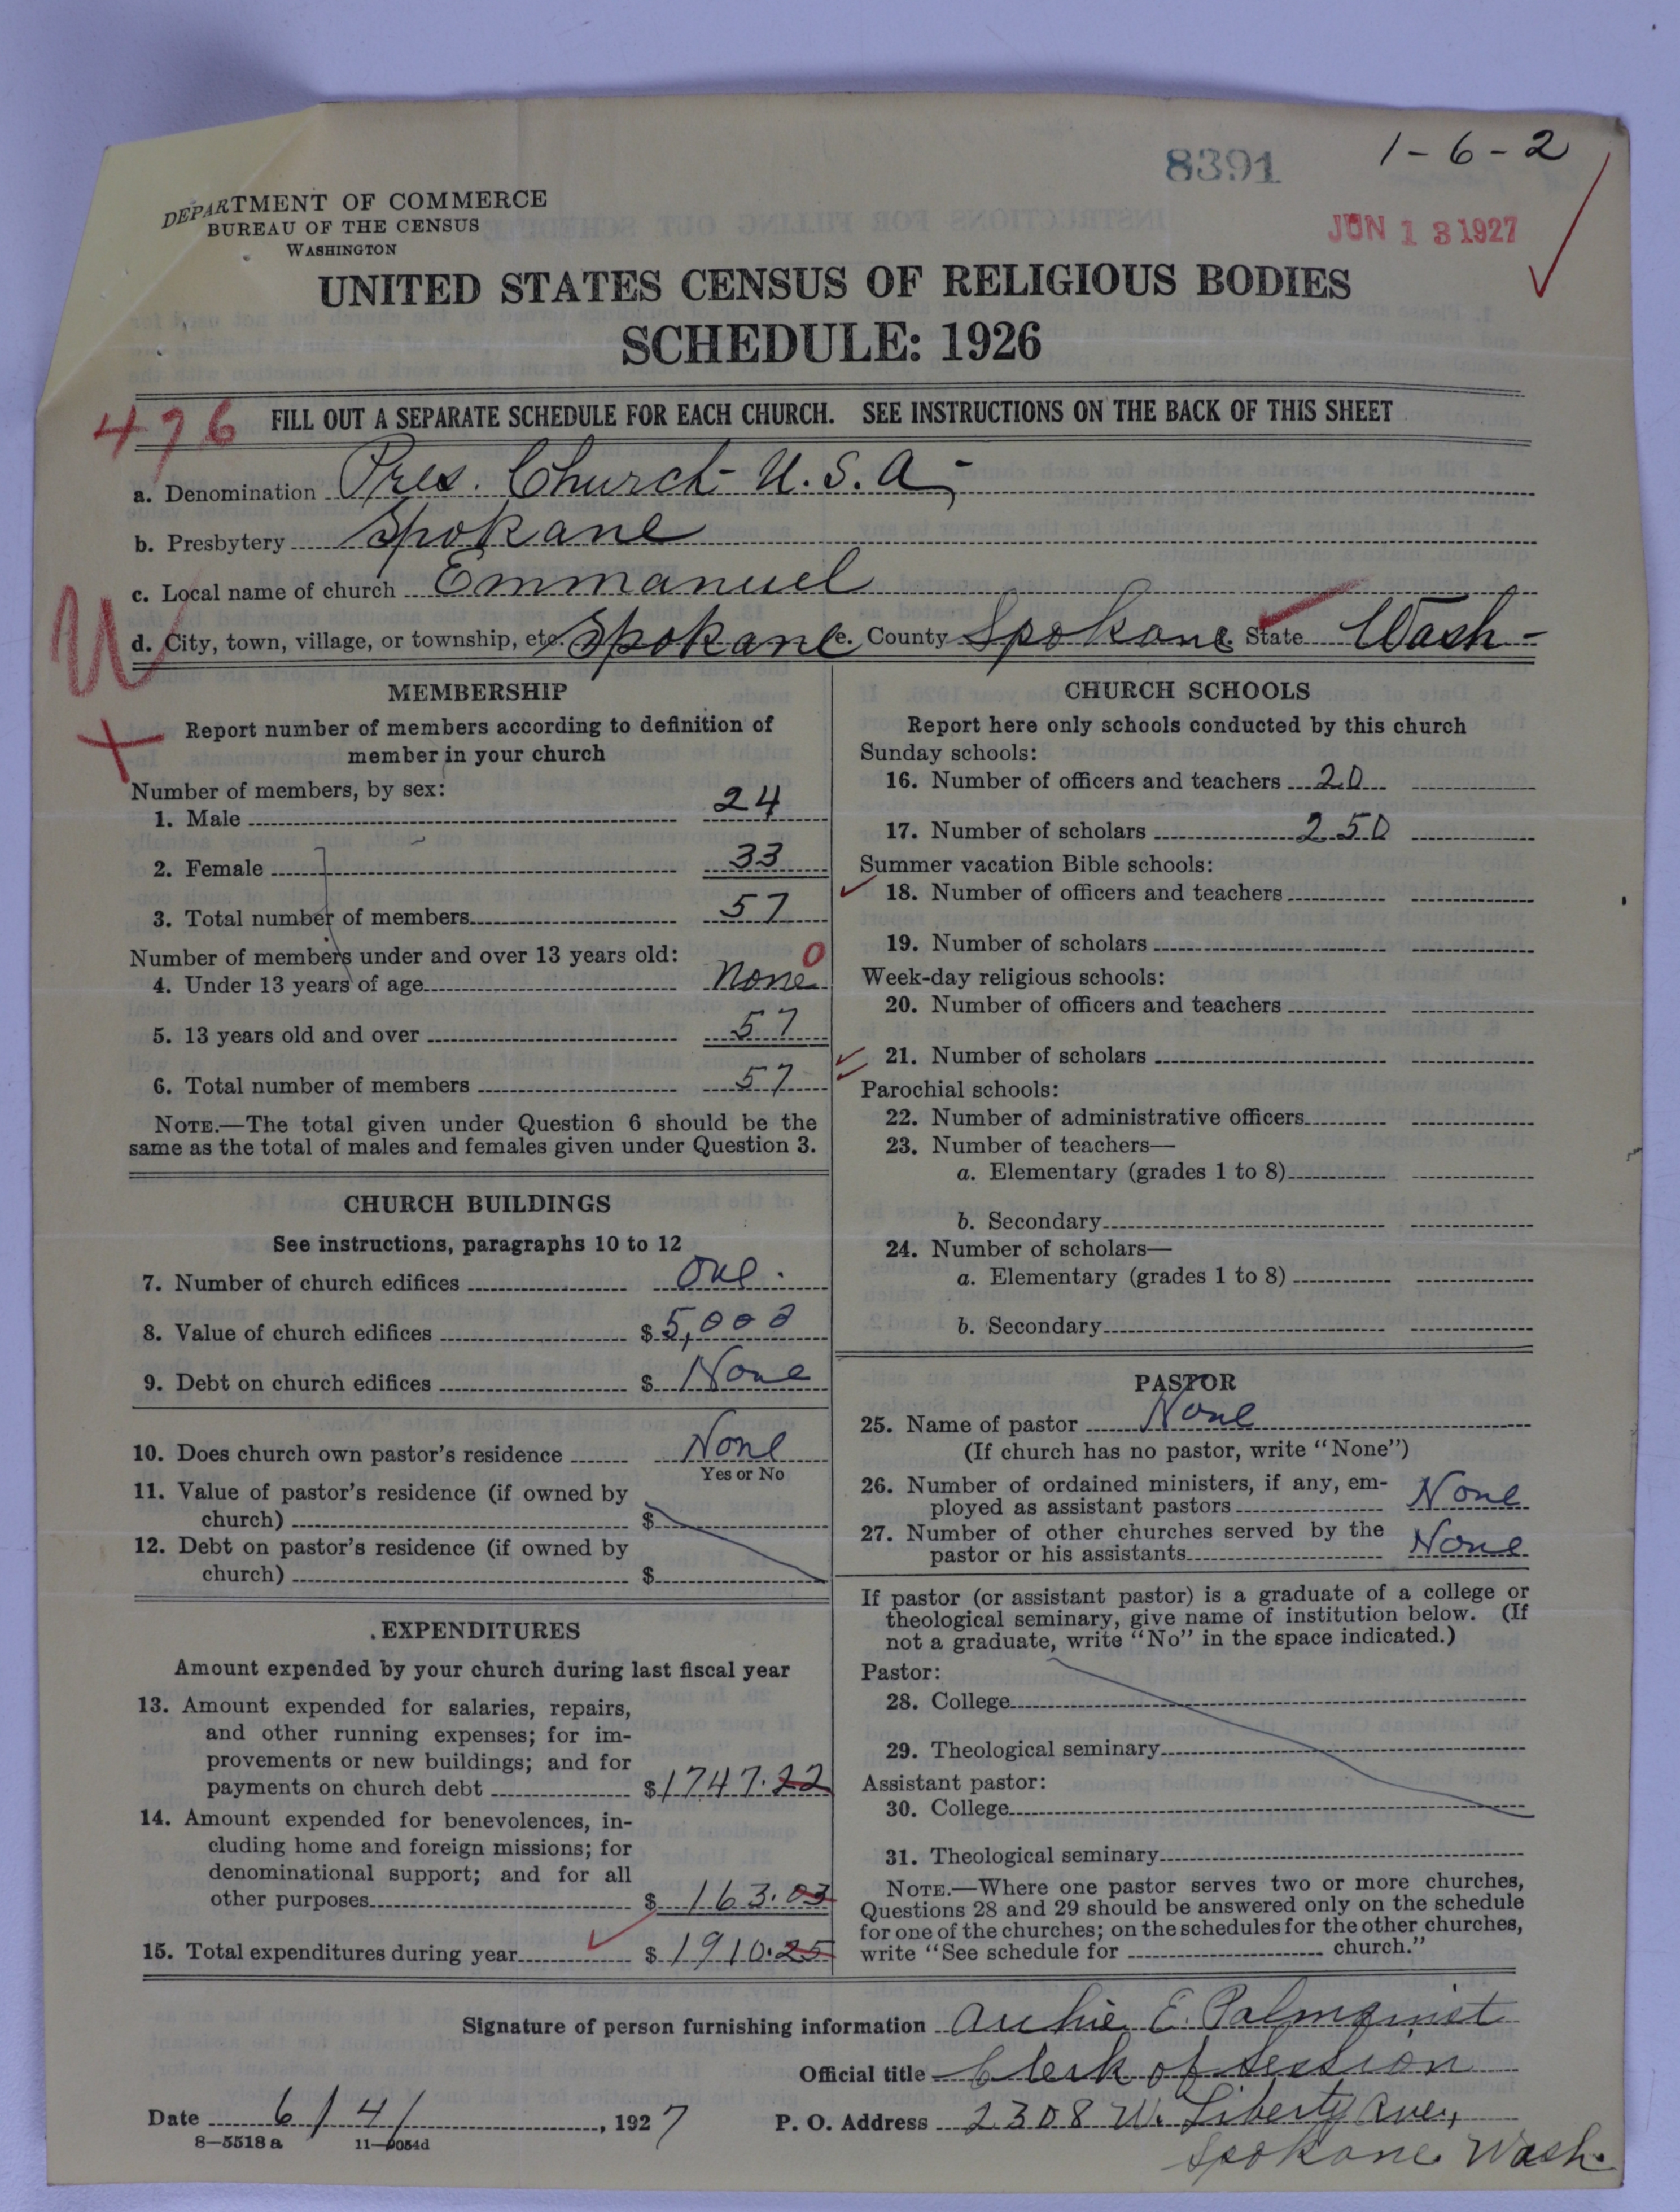 8391
1-6-2
JUN 13 1927
DEPARTMENT OF COMMERCE
BUREAU OF THE CENSUS
WASHINGTON
UNITED STATES CENSUS OF RELIGIOUS BODIES
SCHEDULE: 1926
476
FILL OUT A SEPARATE SCHEDULE FOR EACH CHURCH. SEE INSTRUCTIONS ON THE BACK OF THIS SHEET
a. Denomination Pres. Church- U.S.A-
b. Presbytery Spokane
c. Local name of church Emmanuel
d. City, town, village, or township, etc. Spokane e. County Spokane State Wash-
U
MEMBERSHIP
Report number of members according to definition of
member in your church
Number of members, by sex:
1. Male 24
2. Female 33
3. Total number of members 57
Number of members under and over 13 years old: 0
4. Under 13 years of age none
5. 13 years old and over 57
6. Total number of members 57
NOTE.—The total given under Question 6 should be the
same as the total of males and females given under Question 3.
CHURCH BUILDINGS
See instructions, paragraphs 10 to 12
7. Number of church edifices One.
8. Value of church edifices $5,000
9. Debt on church edifices $ None
10. Does church own pastor's residence None
Yes or No
11. Value of pastor's residence (if owned by
church) $
12. Debt on pastor's residence (if owned by
church) $
EXPENDITURES
Amount expended by your church during last fiscal year
13. Amount expended for salaries, repairs,
and other running expenses; for im-
provements or new buildings; and for
payments on church debt $1747.22
14. Amount expended for benevolences, in-
cluding home and foreign missions; for
denominational support; and for all
other purposes $ 163.03
15. Total expenditures during year $1910.25
CHURCH SCHOOLS
Report here only schools conducted by this church
Sunday schools:
16. Number of officers and teachers 20
17. Number of scholars 250
Summer vacation Bible schools:
18. Number of officers and teachers
19. Number of scholars
Week-day religious schools:
20. Number of officers and teachers
21. Number of scholars
Parochial schools:
22. Number of administrative officers
23. Number of teachers—
a. Elementary (grades 1 to 8)
b. Secondary
24. Number of scholars—
a. Elementary (grades 1 to 8)
b. Secondary
PASTOR
25. Name of pastor None
(If church has no pastor, write "None")
26. Number of ordained ministers, if any, em-
ployed as assistant pastors None
27. Number of other churches served by the
pastor or his assistants None
If pastor (or assistant pastor) is a graduate of a college or
theological seminary, give name of institution below. (If
not a graduate, write "No" in the space indicated.)
Pastor:
28. College
29. Theological seminary
Assistant pastor:
30. College
31. Theological seminary
NOTE.—Where one pastor serves two or more churches,
Questions 28 and 29 should be answered only on the schedule
for one of the churches; on the schedules for the other churches,
write "See schedule for church."
Signature of person furnishing information Archie E. Palmquist
Official title Clerk of Session
Date 6/4/, 1927 P. O. Address 2308 W. Liberty Ave,
Spokane Wash.
8—5518a 11—9054d